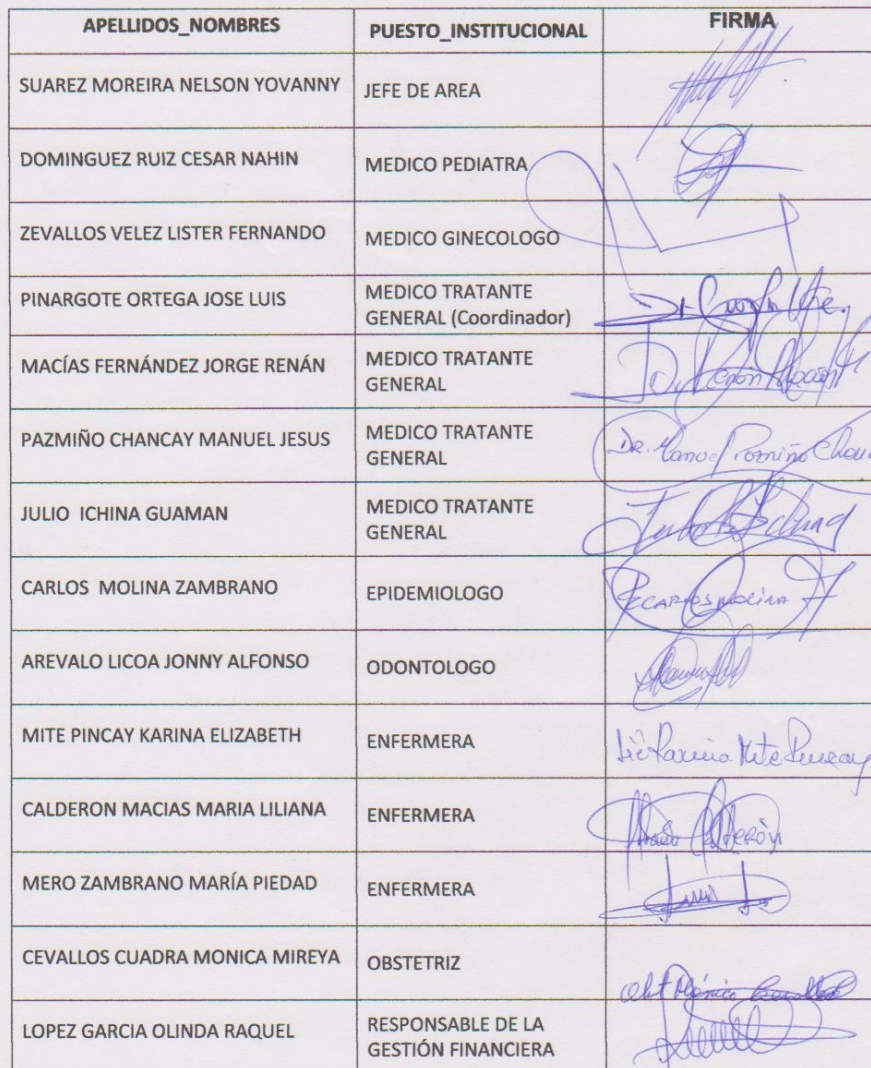 APELLIDOS_NOMBRES PUESTO_INSTITUCIONAL FIRMA
SUAREZ MOREIRA NELSON YOVANNY JEFE DE AREA
DOMINGUEZ RUIZ CESAR NAHIN MEDICO PEDIATRA
ZEVALLOS VELEZ LISTER FERNANDO MEDICO GINECOLOGO
PINARGOTE ORTEGA JOSE LUIS MEDICO TRATANTE
GENERAL (Coordinador)
MACÍAS FERNÁNDEZ JORGE RENÁN MEDICO TRATANTE
GENERAL
PAZMIÑO CHANCAY MANUEL JESUS MEDICO TRATANTE
GENERAL
Dr. Manuel Pazmiño
JULIO ICHINA GUAMAN MEDICO TRATANTE
GENERAL
CARLOS MOLINA ZAMBRANO EPIDEMIOLOGO
AREVALO LICOA JONNY ALFONSO ODONTOLOGO
MITE PINCAY KARINA ELIZABETH ENFERMERA
Karina Mite Pincay
CALDERON MACIAS MARIA LILIANA ENFERMERA
MERO ZAMBRANO MARÍA PIEDAD ENFERMERA
CEVALLOS CUADRA MONICA MIREYA OBSTETRIZ
LOPEZ GARCIA OLINDA RAQUEL RESPONSABLE DE LA
GESTIÓN FINANCIERA